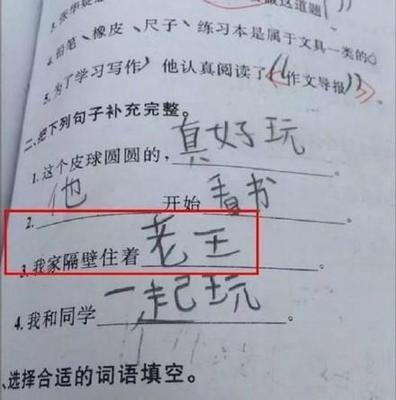 做这道题
4.铅笔、橡皮、尺子、练习本是属于文具一类的。
5.为了学习写作,他认真阅读了《作文导报》
二、把下列句子补充完整。
1.这个皮球圆圆的,真好玩。
2.他开始看书。
3.我家隔壁住着老王。
4.我和同学一起玩。
、选择合适的词语填空。